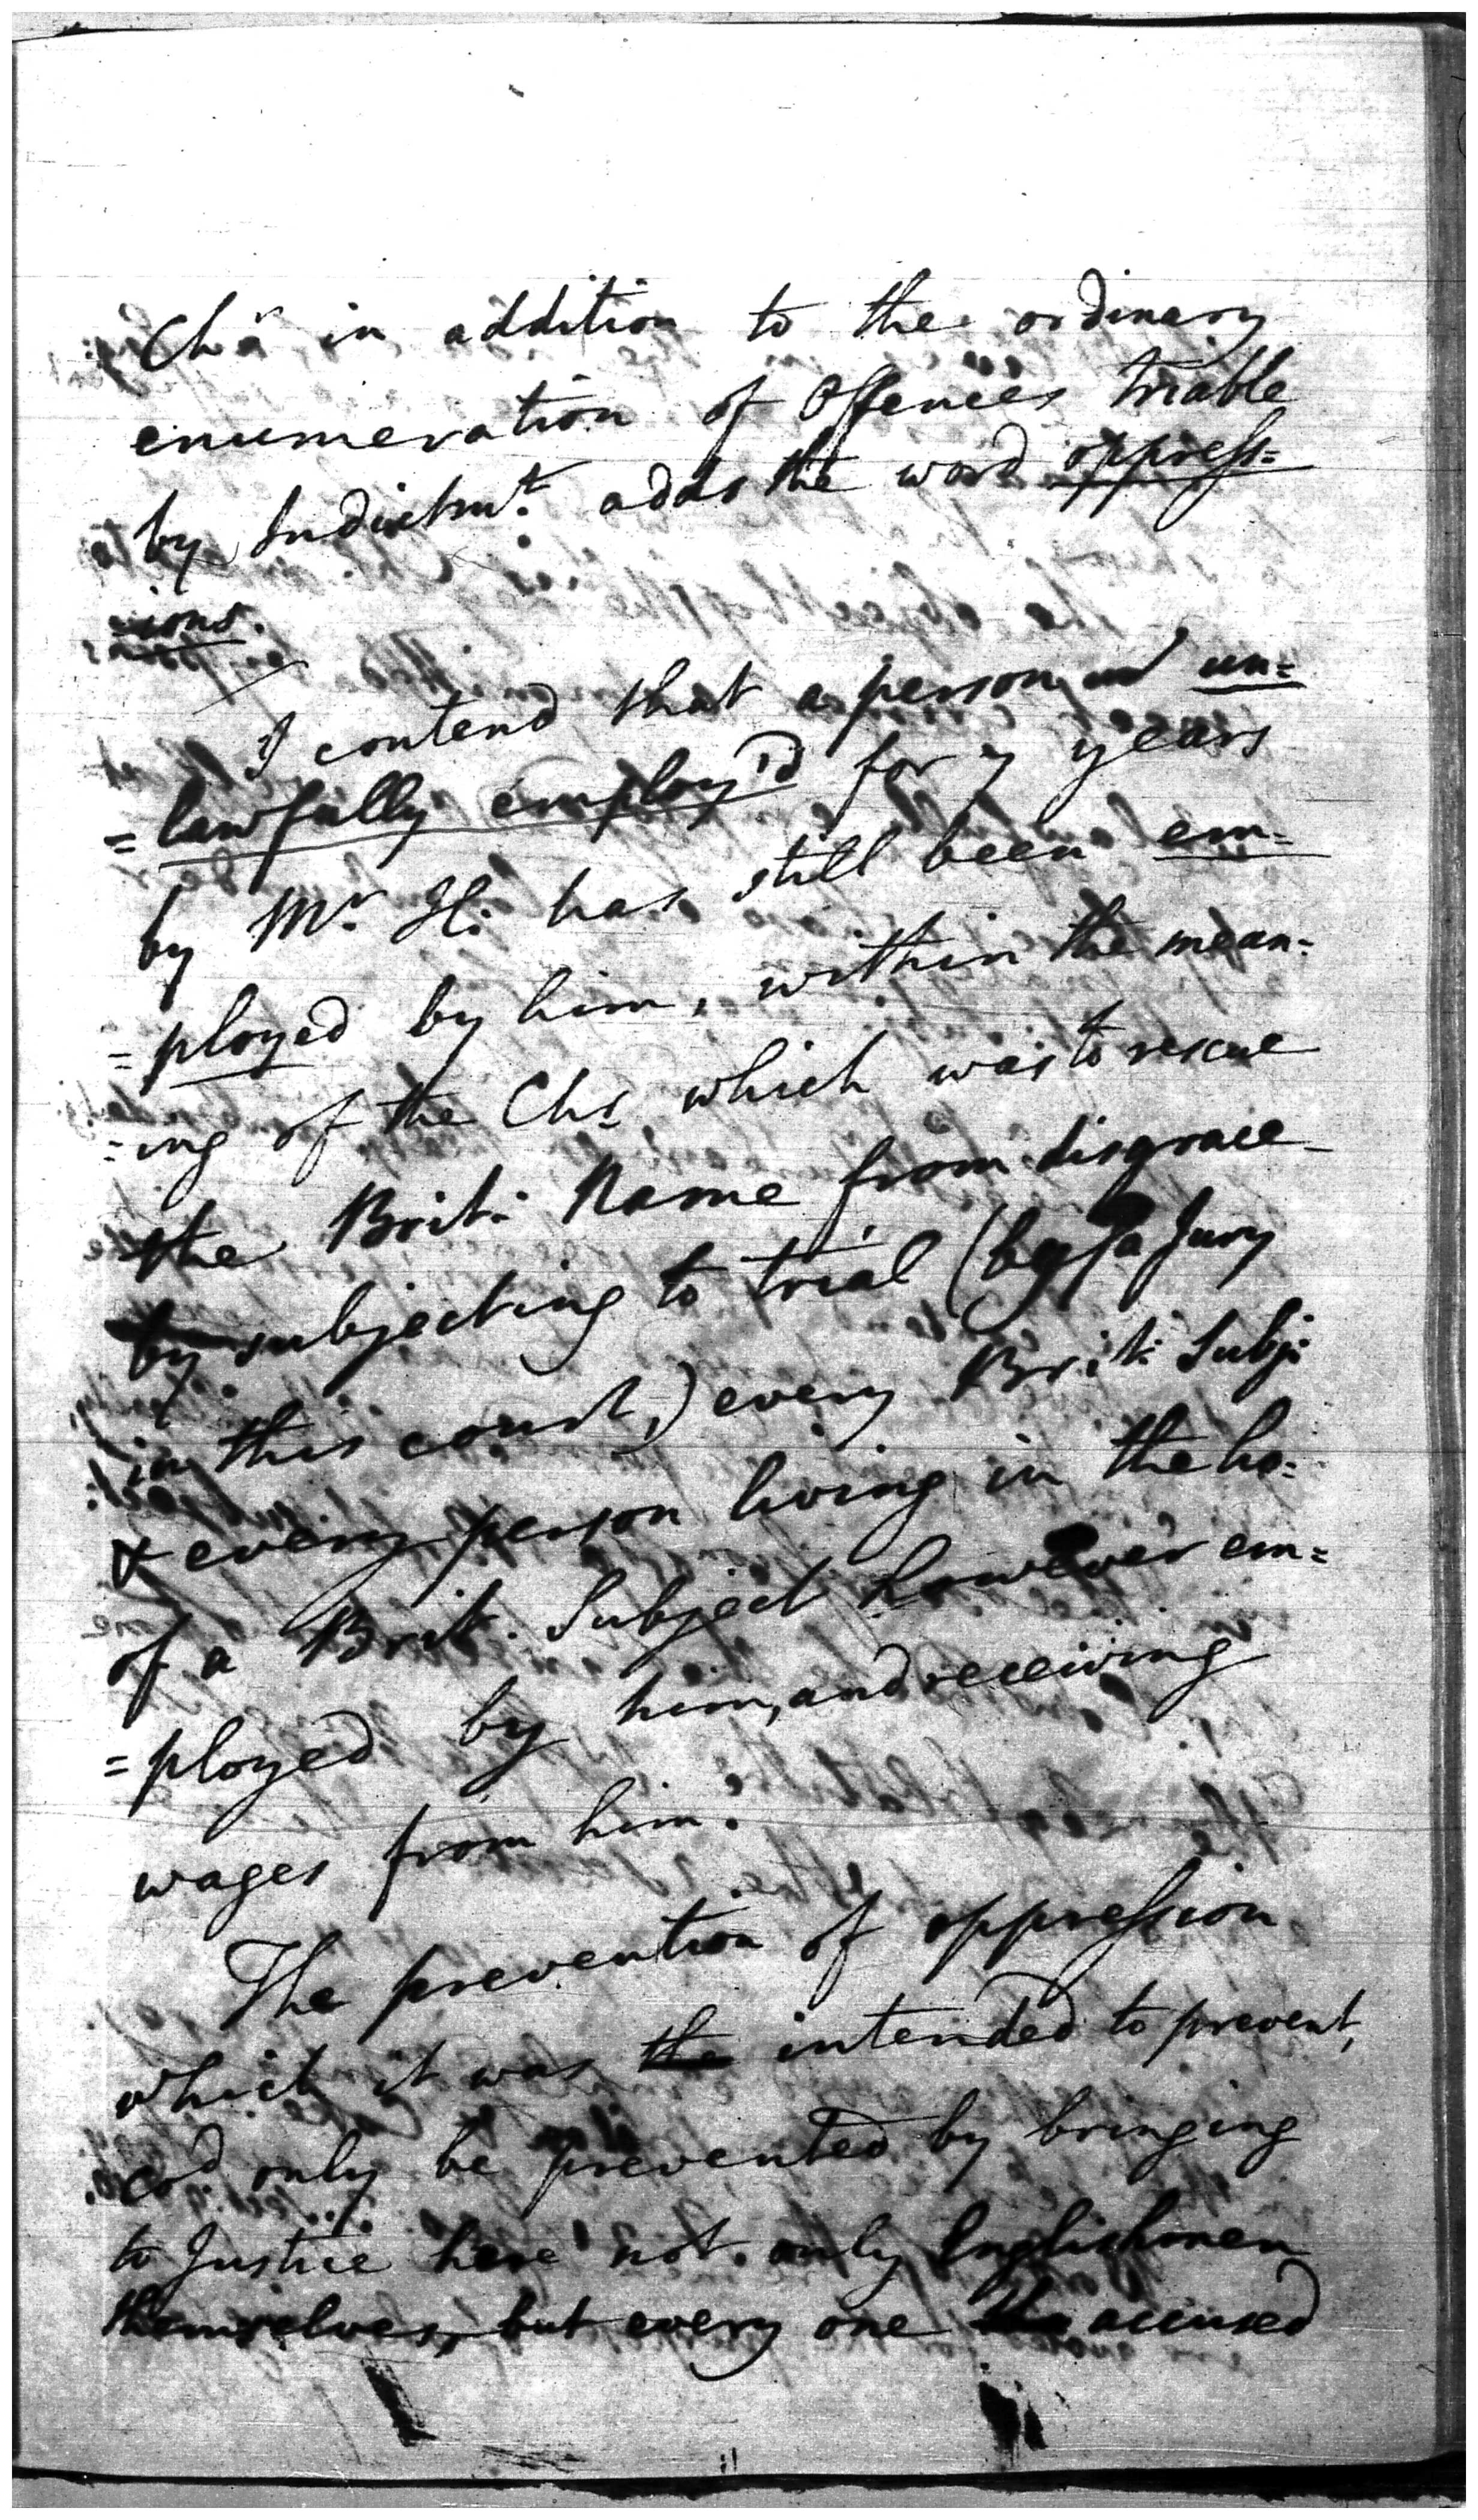 Chr in addition to the ordinary
enumeration of Offences triable
by Indictmt. adds the word oppress=
sions.
I contend that a person un=
=lawfully employ'd for 7 years
by Mr. H: has still been em=
=ployed by him, within the mean=
=ing of the Chr which was to rescue
the Brit: Name from disgrace
by subjecting to trial (by a Jury
in this court,) every Brit: Subj:
& every person living in the ho:
of a Brit. Subject however em=
=ployed by him, and receiving
wages from him.
The prevention of oppression
which it was the intended to prevent,
cod only be prevented by bringing
to Justice here not only Englishmen
themselves, but every one accused